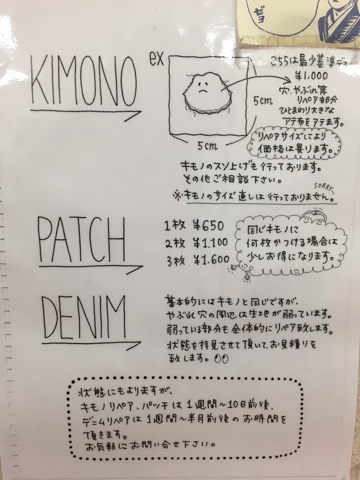 ゼヨ
KIMONO
ex
5cm
5cm
こちらは最少基準デ
¥1,000
穴、やぶれ等
リペア部分
ひとまわり大きな
アテ布をアテます。
リペアサイズにより
価格は異ります。
キモノのスソ上げも行っております。
その他ご相談下さい。
SORRY.
※キモノのサイズ直しは行っておりません。
PATCH
1枚 ¥650
2枚 ¥1,100
3枚 ¥1,600
同じキモノに
何枚かつける場合は
少しお得になります。
DENIM
基本的にはキモノと同じですが、
やぶれ穴の周辺は生地が弱っています。
弱っている部分も全体的にリペア致します。
状態を拝見させて頂いてお見積りを
致します。
状態にもよりますが、
キモノリペア、パッチは1週間〜10日前後、
デニムリペアは1週間〜半月前後のお時間を
頂きます。
お気軽にお問い合せ下さい。